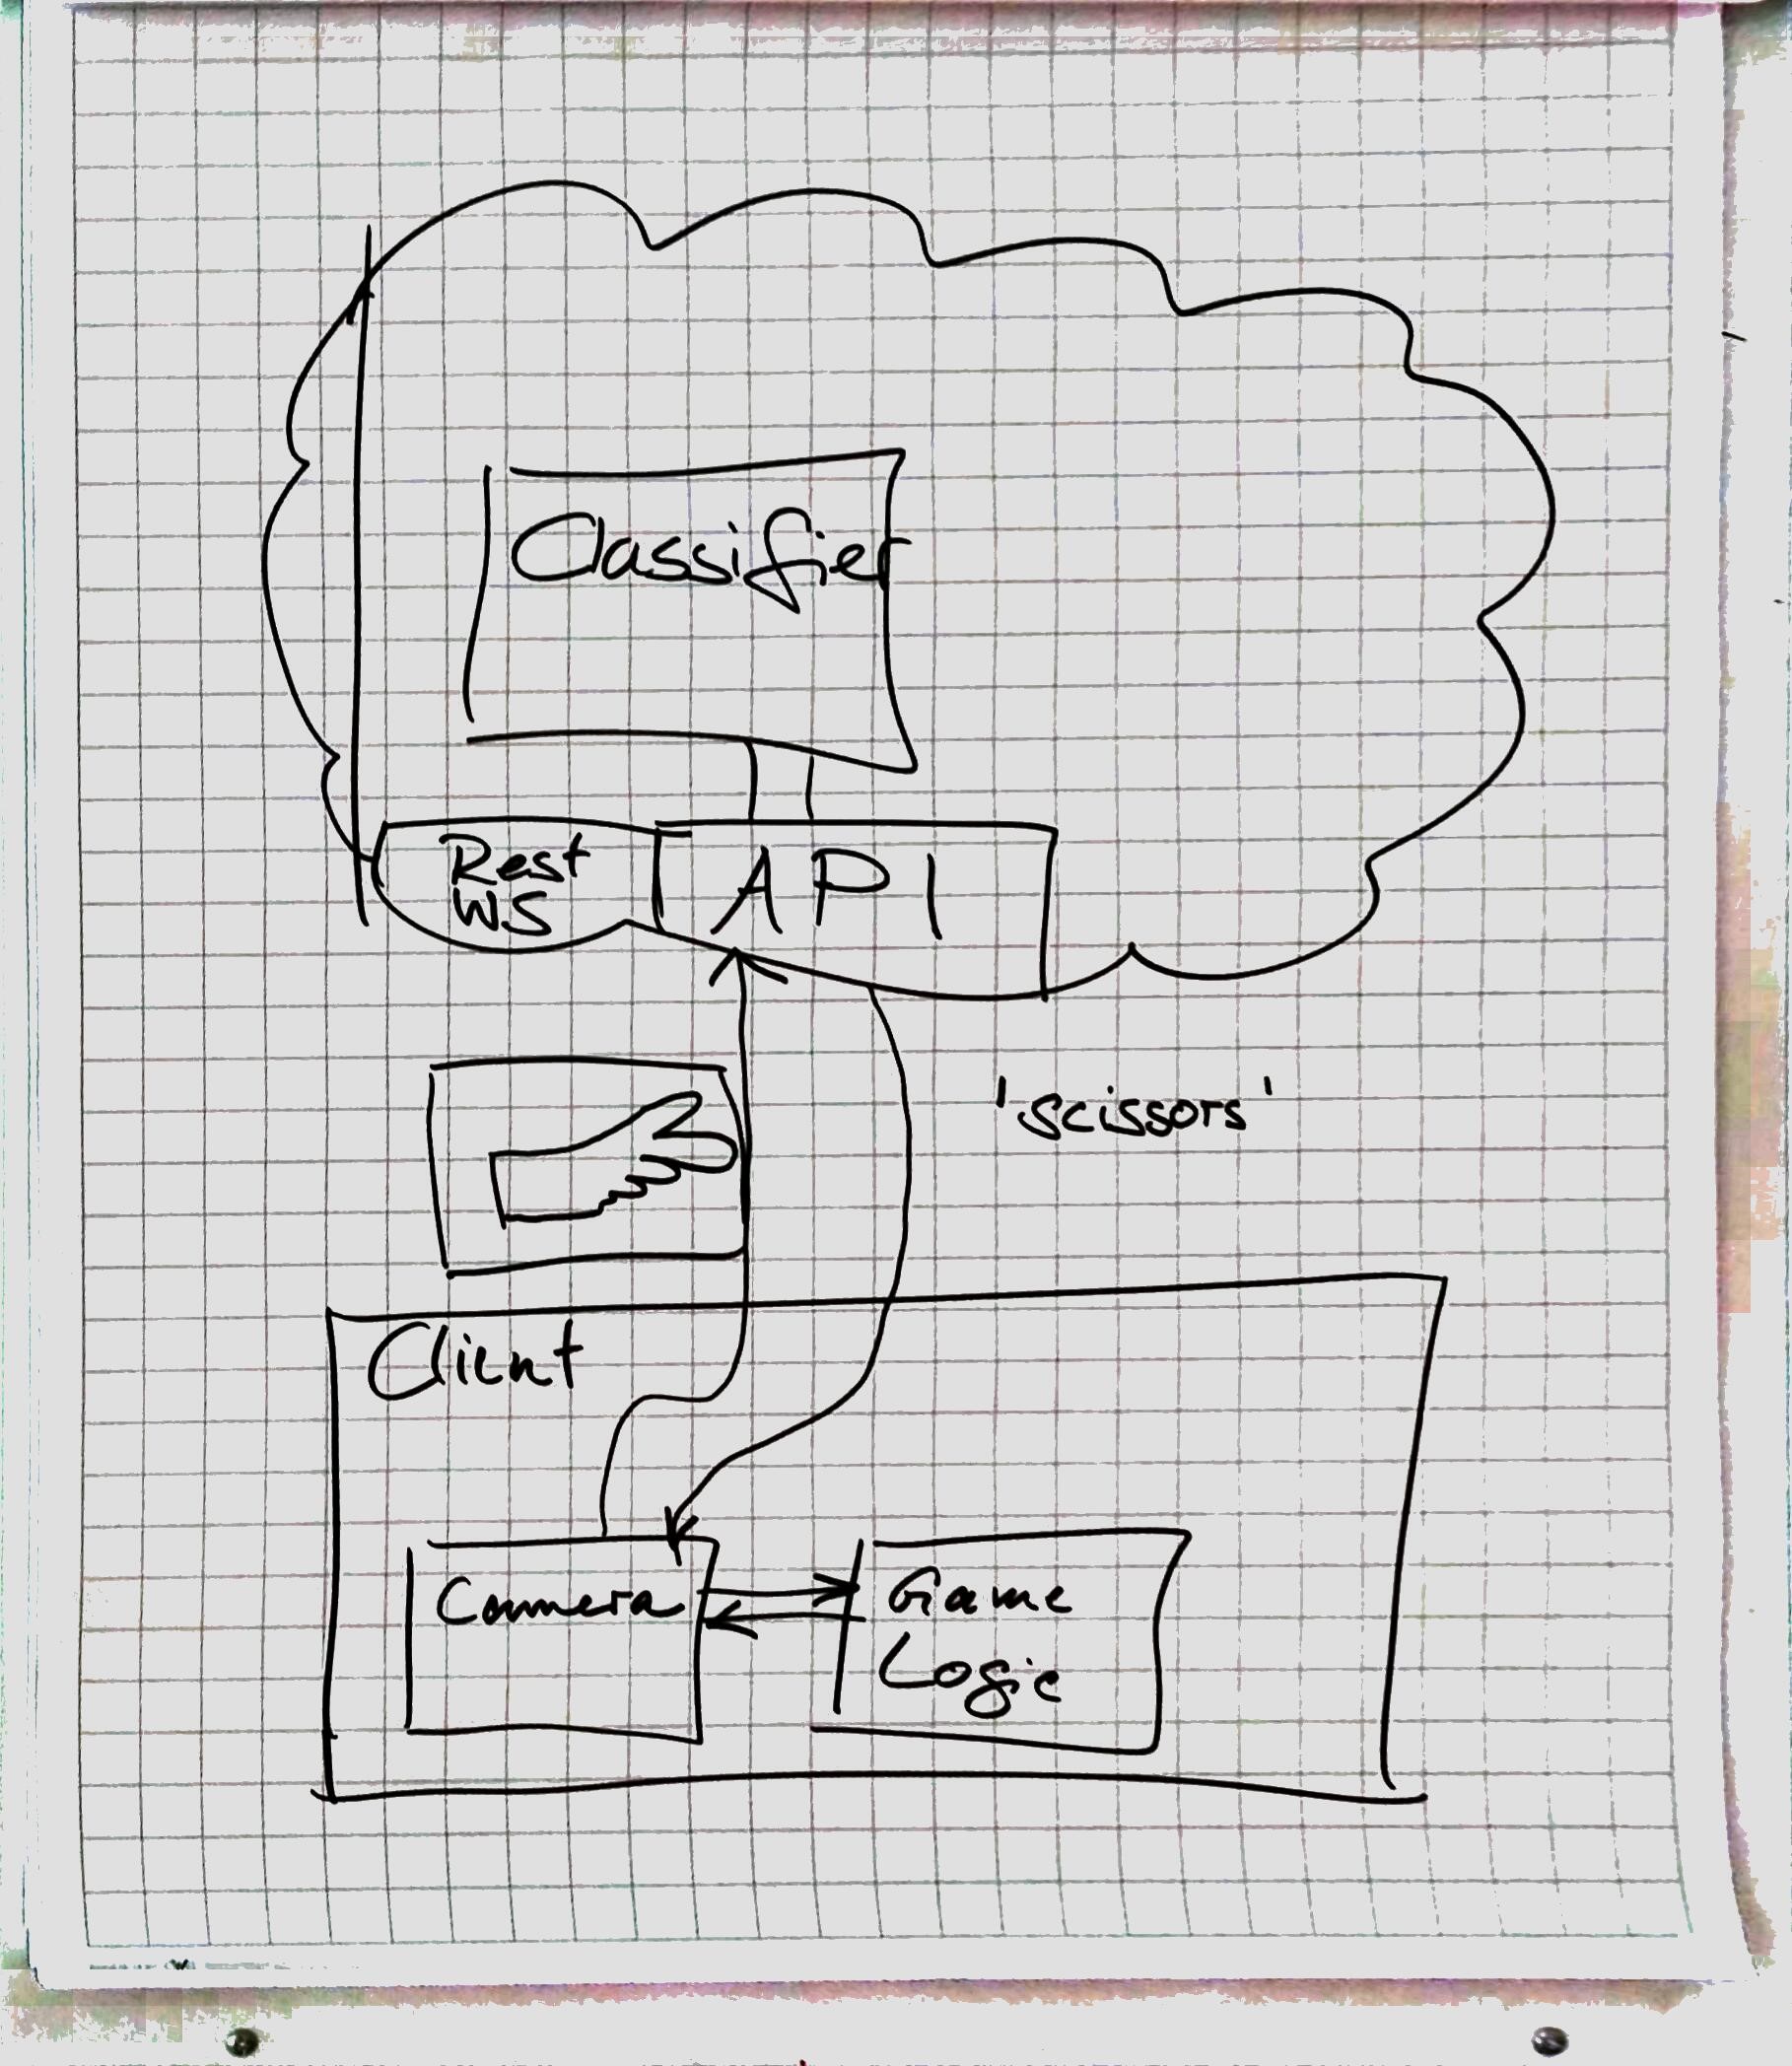 Classifier
Rest
WS
API
'scissors'
Client
Camera
Game
Logic